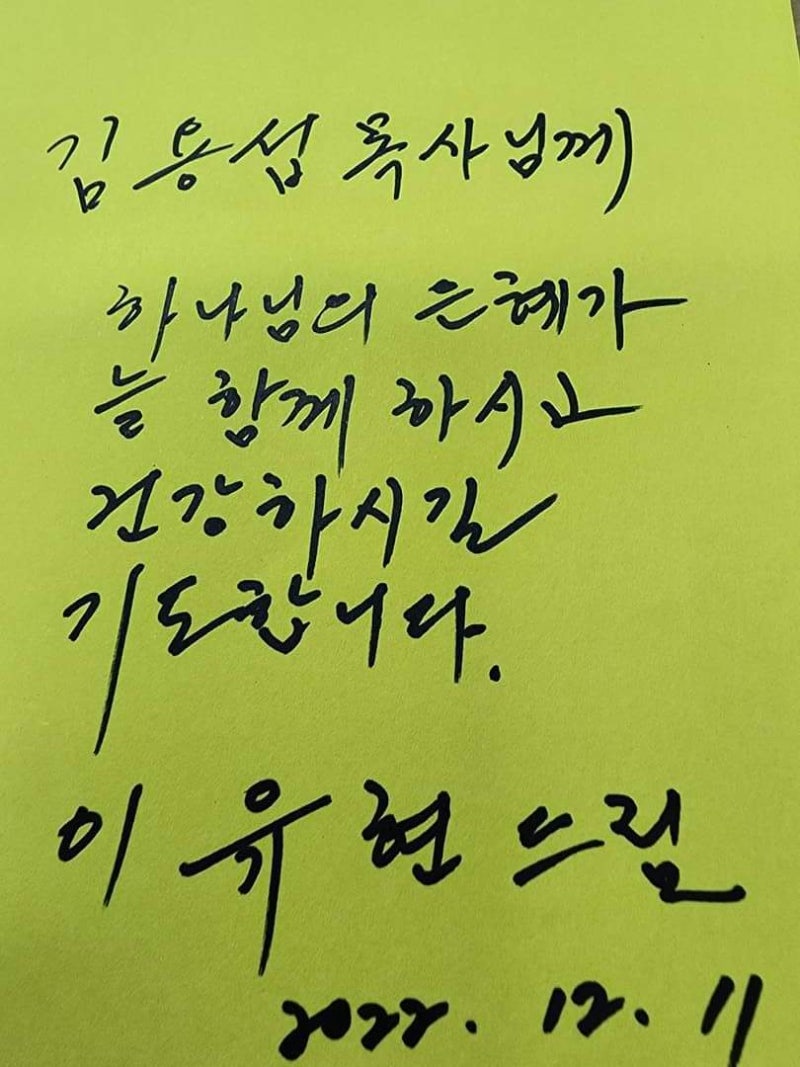 김용섭 목사님께
하나님의 은혜가
늘 함께 하시고
건강하시길
기도합니다.
이유현 드림
2022. 12. 11